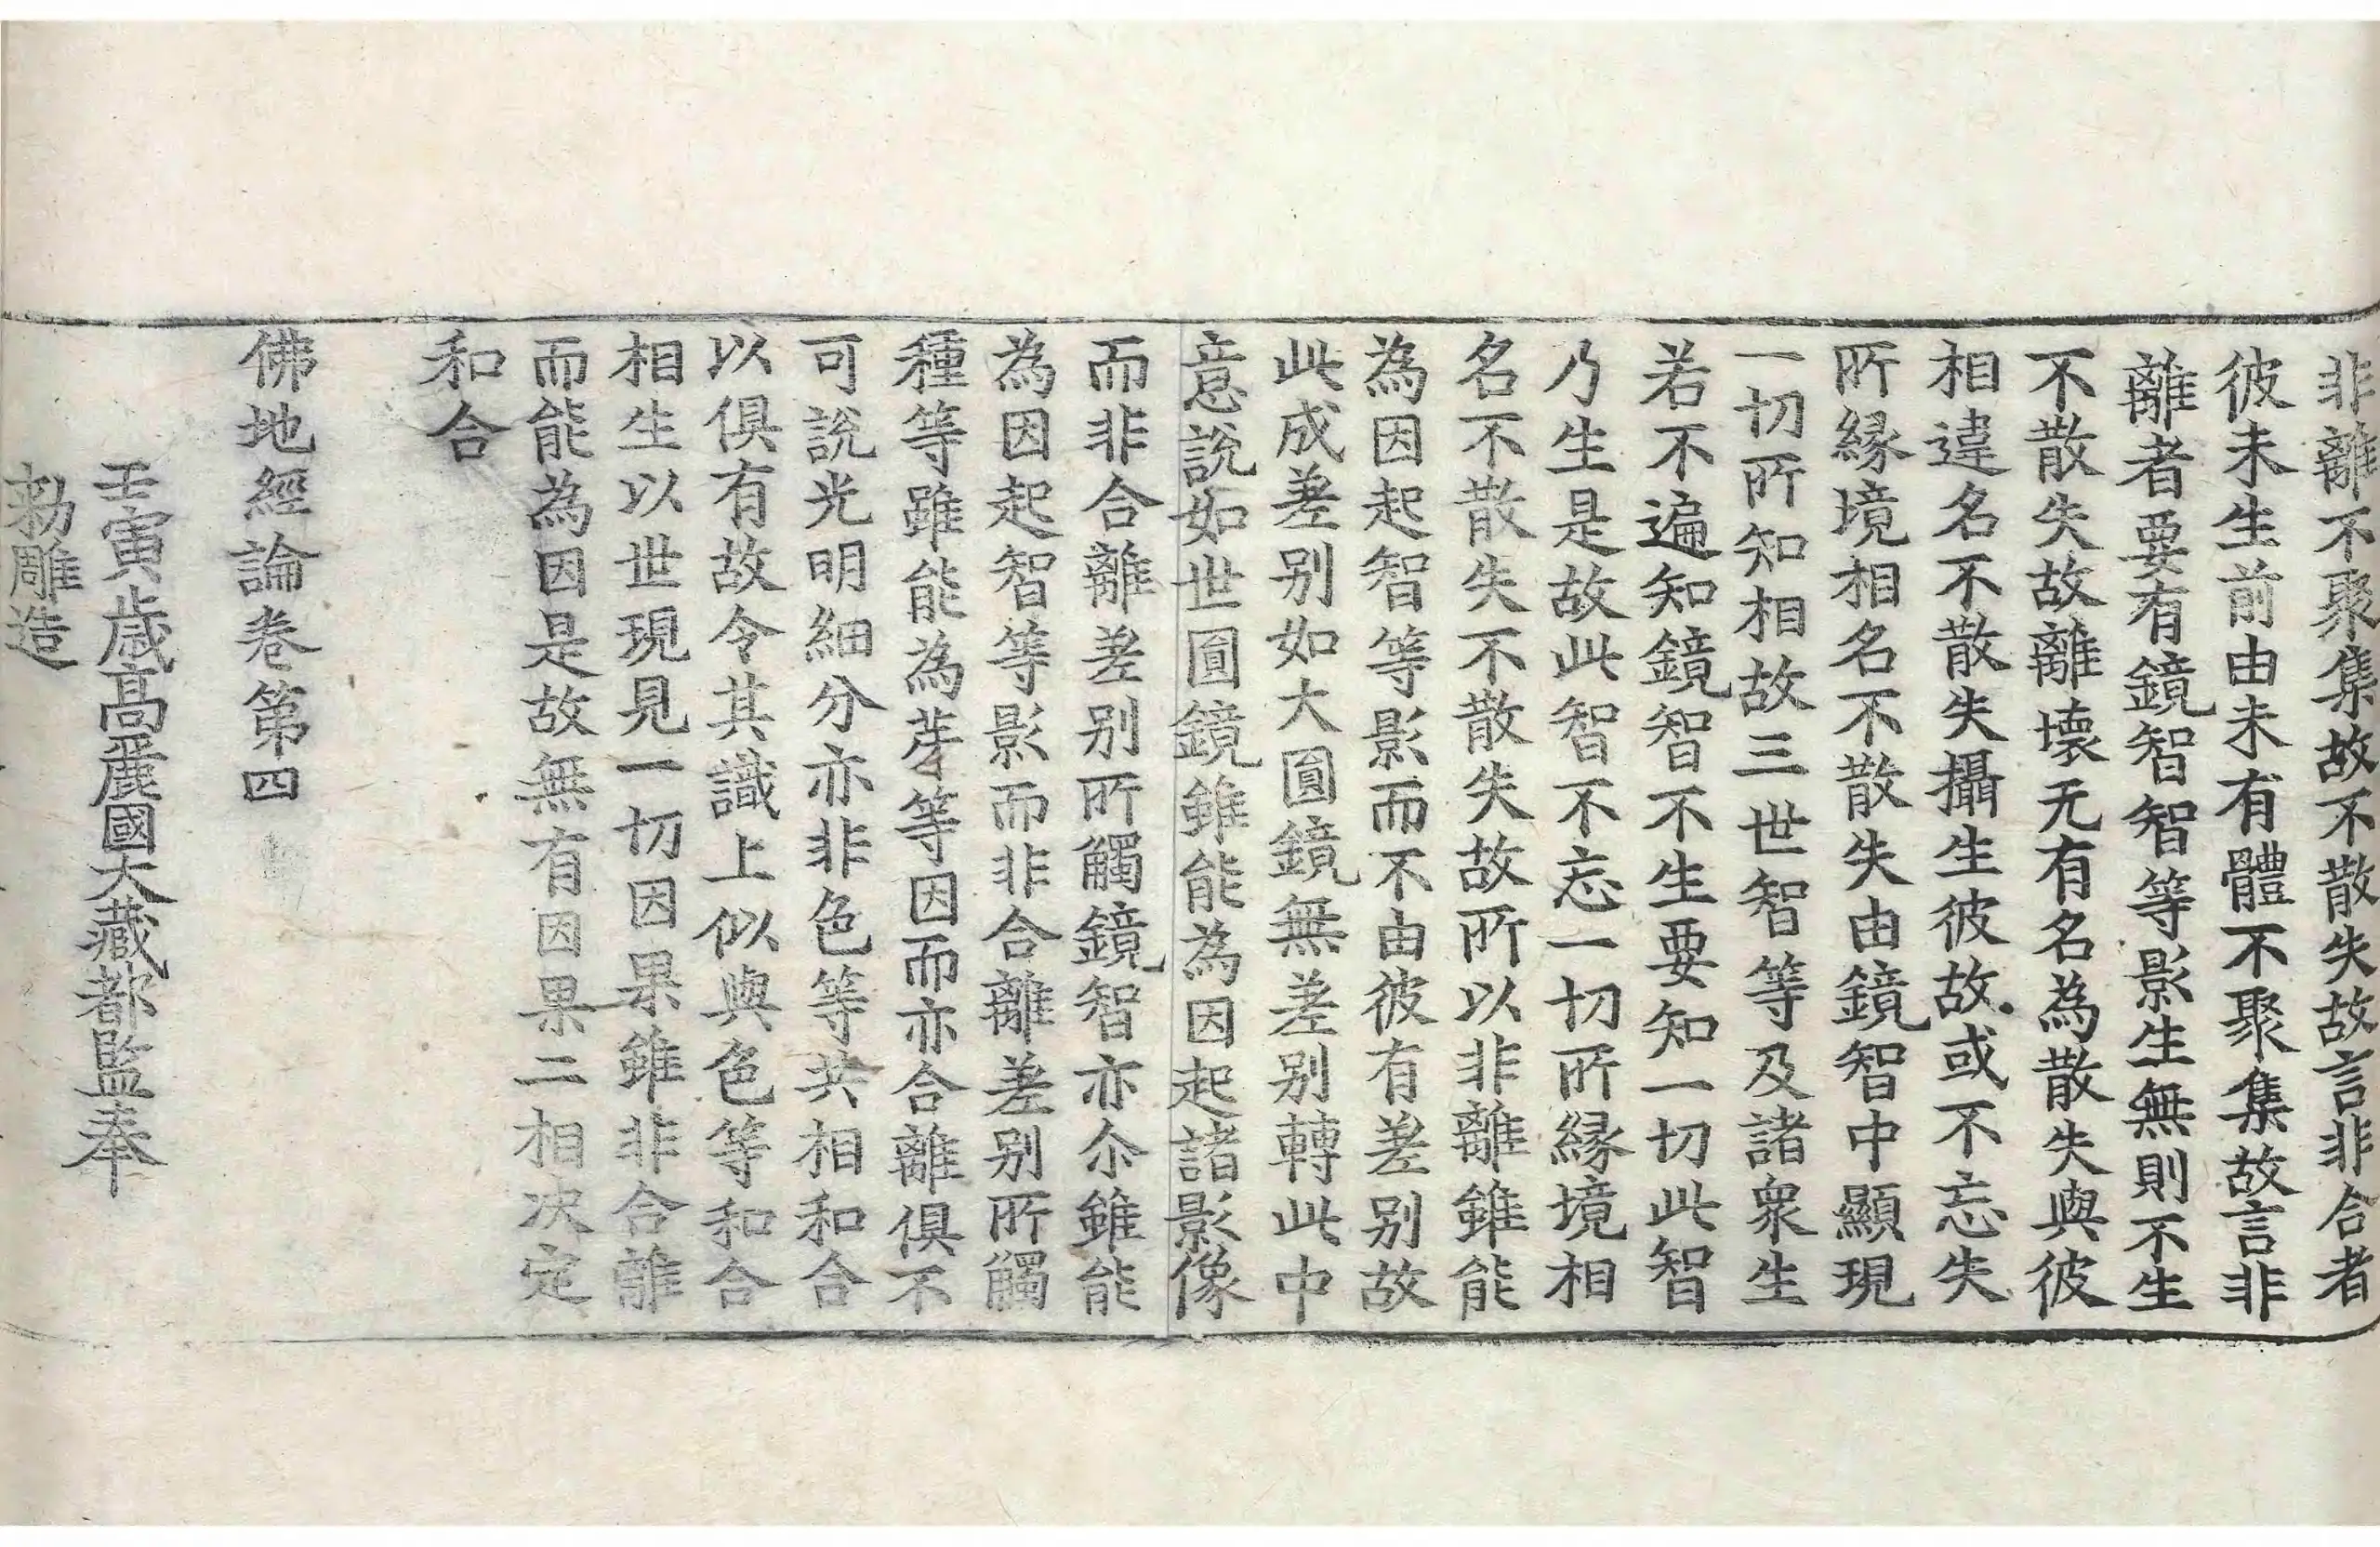 非離不聚集故不散失故言非合者
彼未生前由未有體不聚集故言非
離者要有鏡智智等影生無則不生
不散失故離壞无有名為散失與彼
相違名不散失攝生彼故或不忘失
所緣境相名不散失由鏡智中顯現
一切所知相故三世智等及諸衆生
若不遍知鏡智不生要知一切此智
乃生是故此智不忘一切所緣境相
名不散失不散失故所以非離雖能
為因起智等影而不由彼有差別故
此成差別如大圎鏡無差別轉此中
意說如世圎鏡雖能為因起諸影像
而非合離差別所觸鏡智亦尒雖能
為因起智等影而非合離差別所觸
種等雖能為芽等因而亦合離俱不
可說光明細分亦非色等共相和合
以俱有故令其識上似與色等和合
相生以世現見一切因果雖非合離
而能為因是故無有因果二相決定
和合
佛地經論卷第四
壬寅歲高麗國大藏都監奉
勑雕造